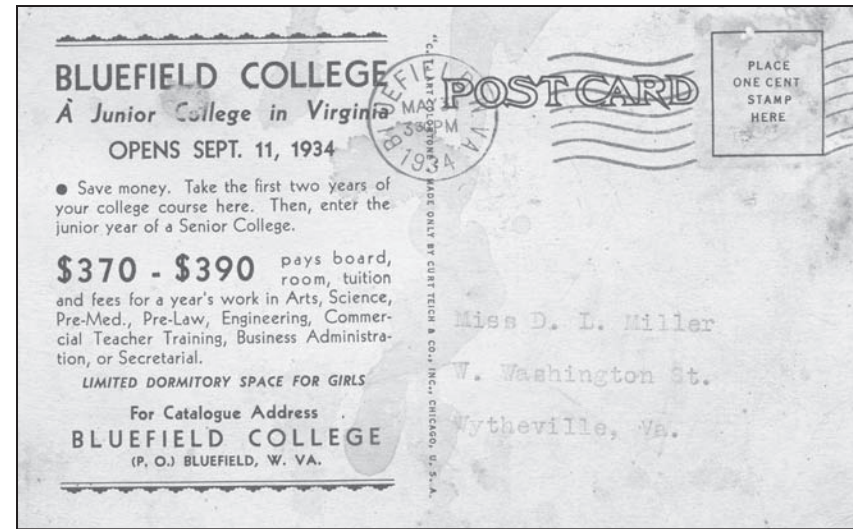 BLUEFIELD COLLEGE
A Junior College in Virginia
OPENS SEPT. 11, 1934
● Save money. Take the first two years of
your college course here. Then, enter the
junior year of a Senior College.
$370 - $390 pays board,
room, tuition
and fees for a year's work in Arts, Science,
Pre-Med., Pre-Law, Engineering, Commer-
cial Teacher Training, Business Administra-
tion, or Secretarial.
LIMITED DORMITORY SPACE FOR GIRLS
For Catalogue Address
BLUEFIELD COLLEGE
(P. O.) BLUEFIELD, W. VA.
"C. T. ART COLORTONE" MADE ONLY BY CURT TEICH & CO., INC., CHICAGO, U. S. A.
BLUEFIELD W. VA
MAY
PM
1934
POST CARD
PLACE
ONE CENT
STAMP
HERE
Miss D. L. Miller
W. Washington St.
Wytheville, Va.